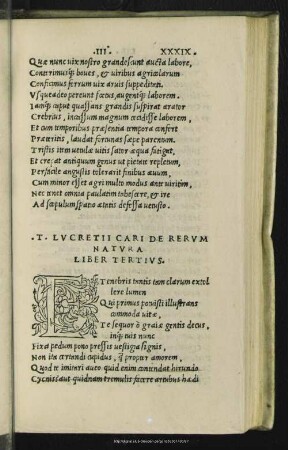 .III. XXXIX.
Quæ nunc uix nostro grandescunt aucta labore,
Conterimusq; boues, & uiribus agricolarum
Conficimus ferrum uix aruis suppeditati.
Vsque adeo pereunt foetus, augentq; laborem.
Iamq; caput quassans grandis suspirat arator
Crebrius, incassum magnum cecidisse laborem,
Et cum temporibus præsentia tempora confert
Præteritis, laudat fortunas sæpe parentum.
Tristis item uetulæ uitis sator atque fatigat,
Et crepat antiquum genus ut pietate repletum,
Perfacile angustis tolerarit finibus æuum,
Cum minor esset agri multo modus ante uiritim,
Nec tenet omnia paulatim tabescere, & ire
Ad scopulum spatio ætatis defessa uetusto.
.T. LVCRETII CARI DE RERVM
NATVRA
LIBER TERTIVS.
E Tenebris tantis tam clarum extol
lere lumen
Qui primus potuisti illustrans
commoda uitæ,
Te sequor ô graiæ gentis decus,
inq; tuis nunc
Fixa pedum pono pressis uestigia signis,
Non ita certandi cupidus, q̃ propter amorem,
Quod te imitari aueo. quid enim contendat hirundo
Cycnis? aut quidnam tremulis facere artubus hædi